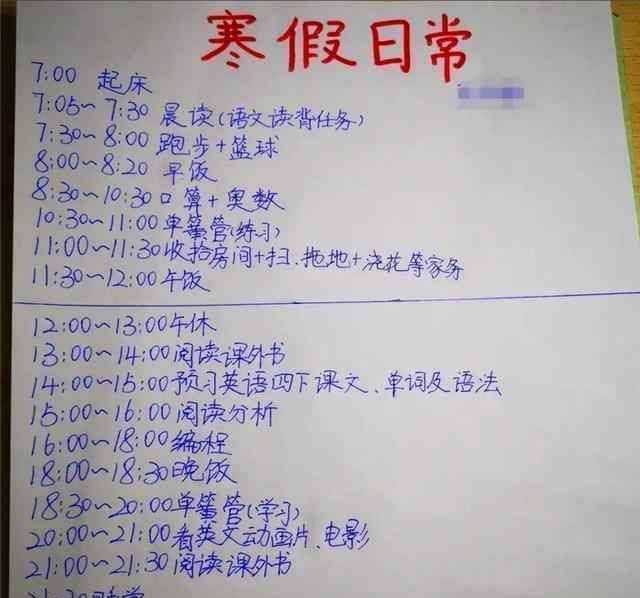 寒假日常
7:00 起床
7:05~7:30 晨读(语文读背任务)
7:30~8:00 跑步+篮球
8:00~8:20 早饭
8:30~10:30 口算+奥数
10:30~11:00 单簧管(练习)
11:00~11:30 收拾房间+扫、拖地+浇花等家务
11:30~12:00 午饭
12:00~13:00 午休
13:00~14:00 阅读课外书
14:00~15:00 预习英语四下课文、单词及语法
15:00~16:00 阅读分析
16:00~18:00 编程
18:00~18:30 晚饭
18:30~20:00 单簧管(学习)
20:00~21:00 看英文动画片、电影
21:00~21:30 阅读课外书
21:30